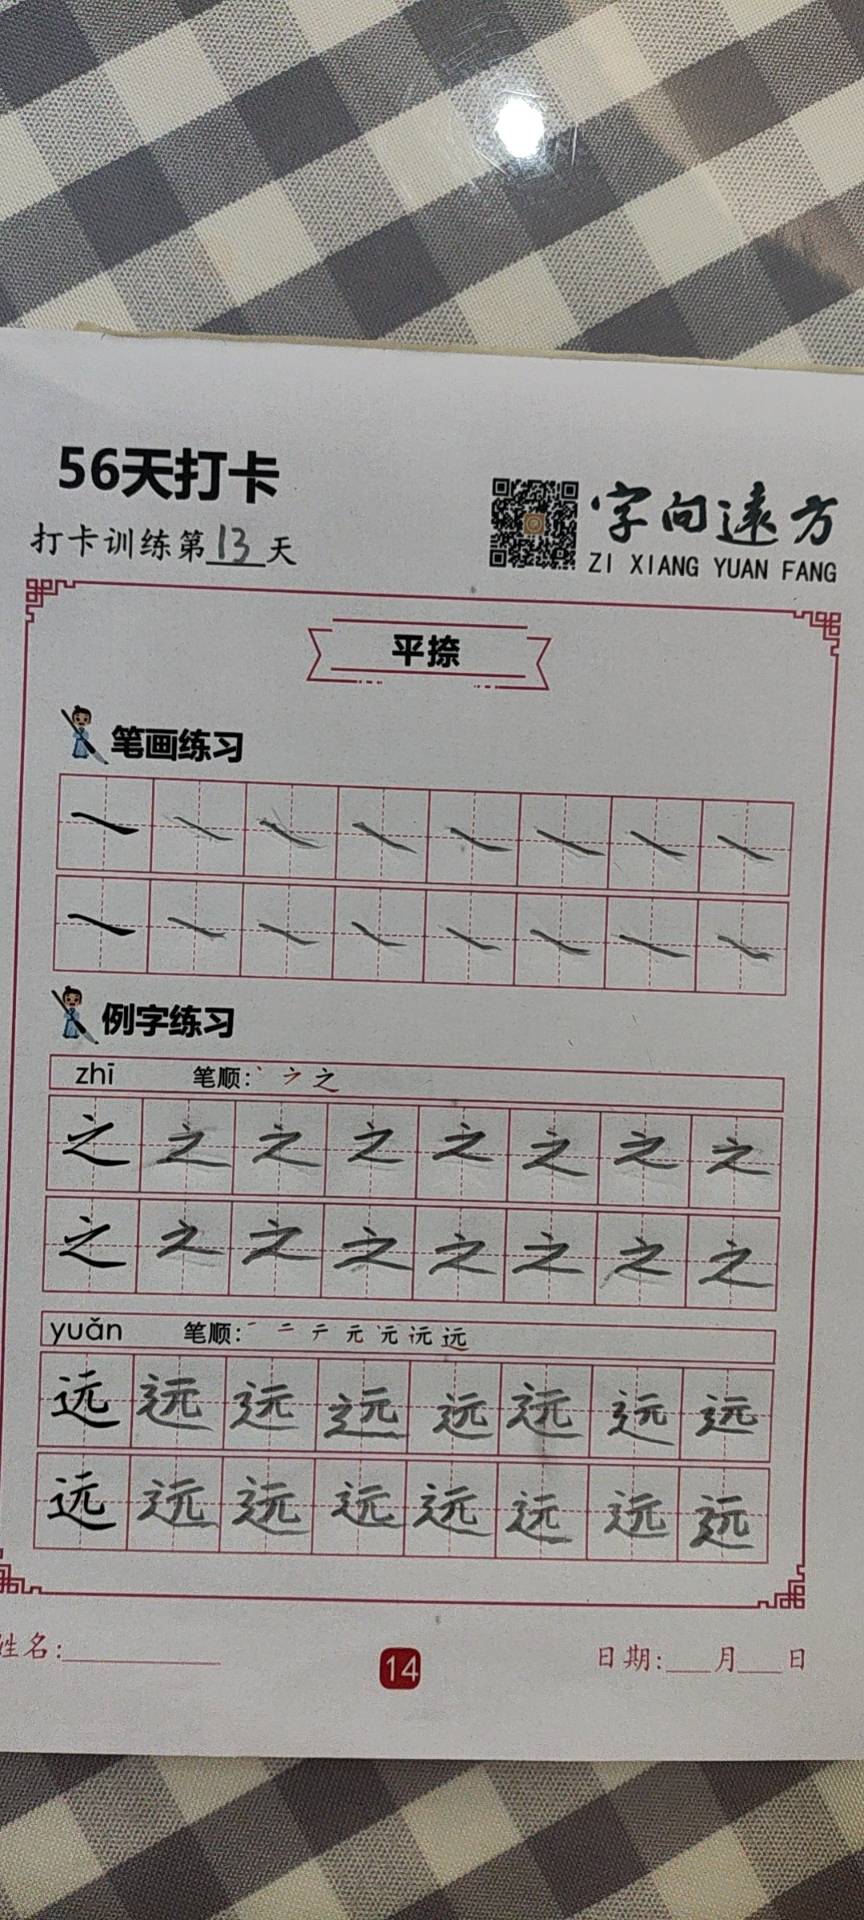 56天打卡
打卡训练第13天
字向遠方
ZI XIANG YUAN FANG
平捺
笔画练习
例字练习
zhī 笔顺: 丶 ㇇ 之
之 之 之 之 之 之 之 之
之 之 之 之 之 之 之 之
yuǎn 笔顺: 一 二 テ 元 元 沅 远
远 远 远 远 远 远 远 远
远 远 远 远 远 远 远 远
姓名:
14
日期: 月 日